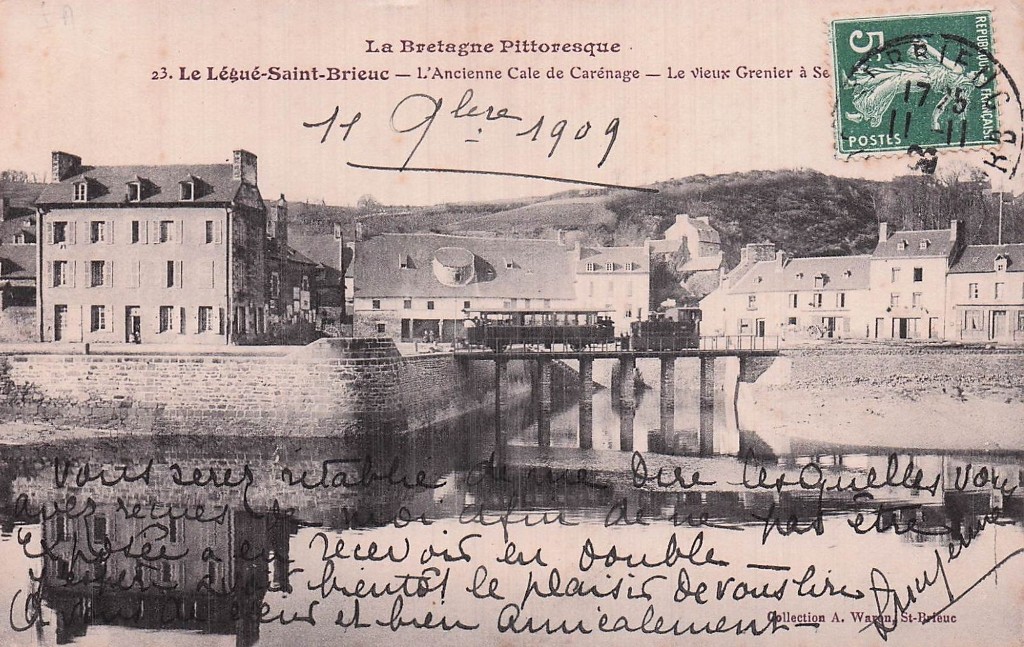 La Bretagne Pittoresque
23. Le Légué-Saint-Brieuc — L'Ancienne Cale de Carénage — Le vieux Grenier à Se
5
REPUBLIQUE FRANÇAISE
POSTES
17 15
11 - 11
11 9bre 1909
Vous serez aimable de me dire lesquelles vous
avez reçues de moi afin de ne pas être
Exposée a en recevoir en double
avoir bientôt le plaisir de vous lire
A vous de cœur et bien Amicalement —
Collection A. Waron, St-Brieuc